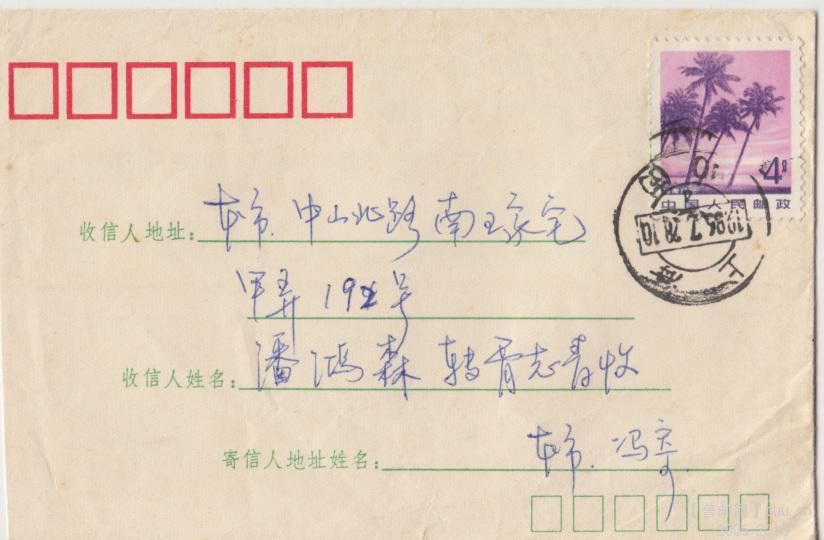 4分
中国人民邮政
上海
1986.7.28.10
收信人地址: 本市.中山北路南王家宅
甲弄 19 号
收信人姓名: 潘鸿森 转 志 收
寄信人地址姓名: 本市.冯寄